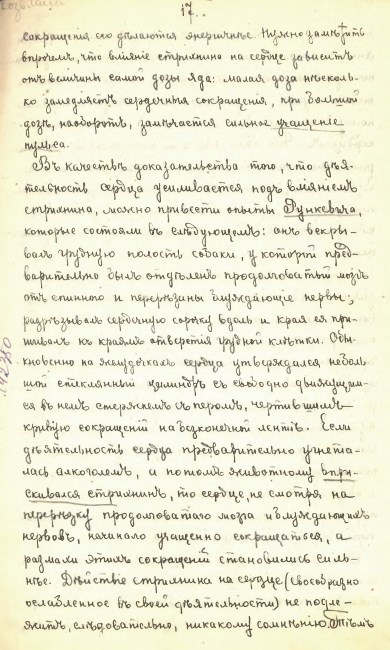 17.
сокращенія его дѣлаются энергичнѣе. Нужно замѣтить
впрочемъ, что вліяніе стрихнина на сердце зависитъ
отъ величины самой дозы яда: малая доза нѣсколь-
ко замедляетъ сердечныя сокращенія, при большой
дозѣ, наоборотъ, замѣчается сильное учащеніе
пульса.
Въ качествѣ доказательства того, что дѣя-
тельность сердца усиливается подъ вліяніемъ
стрихнина, можно привести опыты Дункевича,
которые состояли въ слѣдующемъ: онъ вскры-
валъ грудную полость собаки, у которой пред-
варительно былъ отдѣленъ продолговатый мозгъ
отъ спинного и перерѣзаны блуждающіе нервы;
разрѣзывалъ сердечную сорочку вдоль и края ея при-
шивалъ къ краямъ отверстія грудной клѣтки. Обы-
кновенно на желудочкахъ сердца утверждался неболь-
шой стеклянный цилиндръ съ свободно движущим-
ся въ немъ стержнемъ съ перомъ, чертившимъ
кривую сокращеній на безконечной лентѣ. Если
дѣятельность сердца предварительно угнета-
лась алкоголемъ, а потомъ животному впры-
скивался стрихнинъ, то сердце, не смотря на
перерѣзку продолговатаго мозга и блуждающихъ
нервовъ, начинало учащенно сокращаться, а
размахи этихъ сокращеній становились силь-
нѣе. Дѣйствіе стрихнина на сердце (своеобразно
ослабленное въ своей дѣятельности) не подле-
житъ, слѣдовательно, никакому сомнѣнію. Тѣмъ